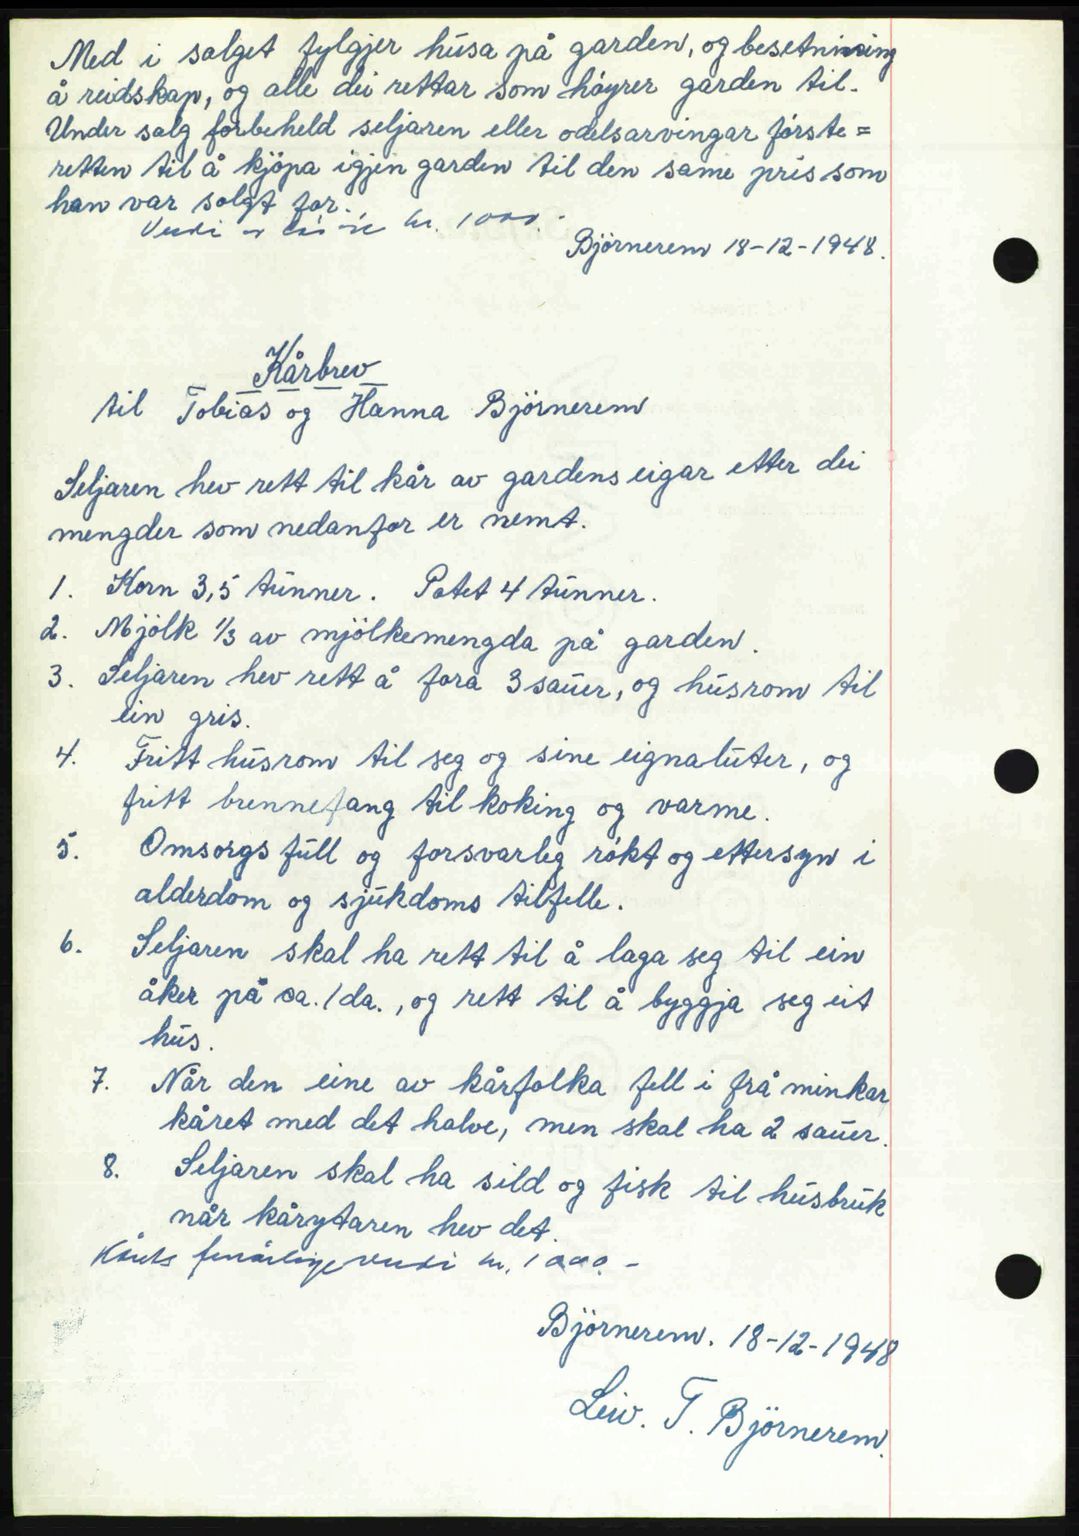 Med i salget fylgjer husa på garden, og besetnining
å reidskap, og alle dei rettar som høyrer garden til.
Under salg forbeheld seljaren eller odelsarvingar første=
retten til å kjöpa igjen garden til den same pris som
han var solgt for.
kr. 1000.-
Björnerem 18-12-1948.
Kårbrev
til Tobias og Hanna Björnerem
Seljaren hev rett til kår av gardens eigar etter dei
mengder som nedanfor er nemt.
1. Korn 3,5 tunner. Potet 4 tunner.
2. Mjölk 1/3 av mjölkemengda på garden.
3. Seljaren hev rett å fora 3 sauer, og husrom til
ein gris.
4. Fritt husrom til seg og sine eignaluter, og
fritt brennefang til koking og varme.
5. Omsorgsfull og forsvarleg røkt og ettersyn i
alderdom og sjukdoms tilfelle.
6. Seljaren skal ha rett til å laga seg til ein
åker på ca. 1 da., og rett til å byggja seg eit
hus.
7. Når den eine av kårfolka fell i frå minkar
kåret med det halve, men skal ha 2 sauer.
8. Seljaren skal ha sild og fisk til husbruk
når kårytaren hev det.
Kårets femårlige verdi kr. 1000.-
Björnerem. 18-12-1948
Leiv. T. Björnerem.